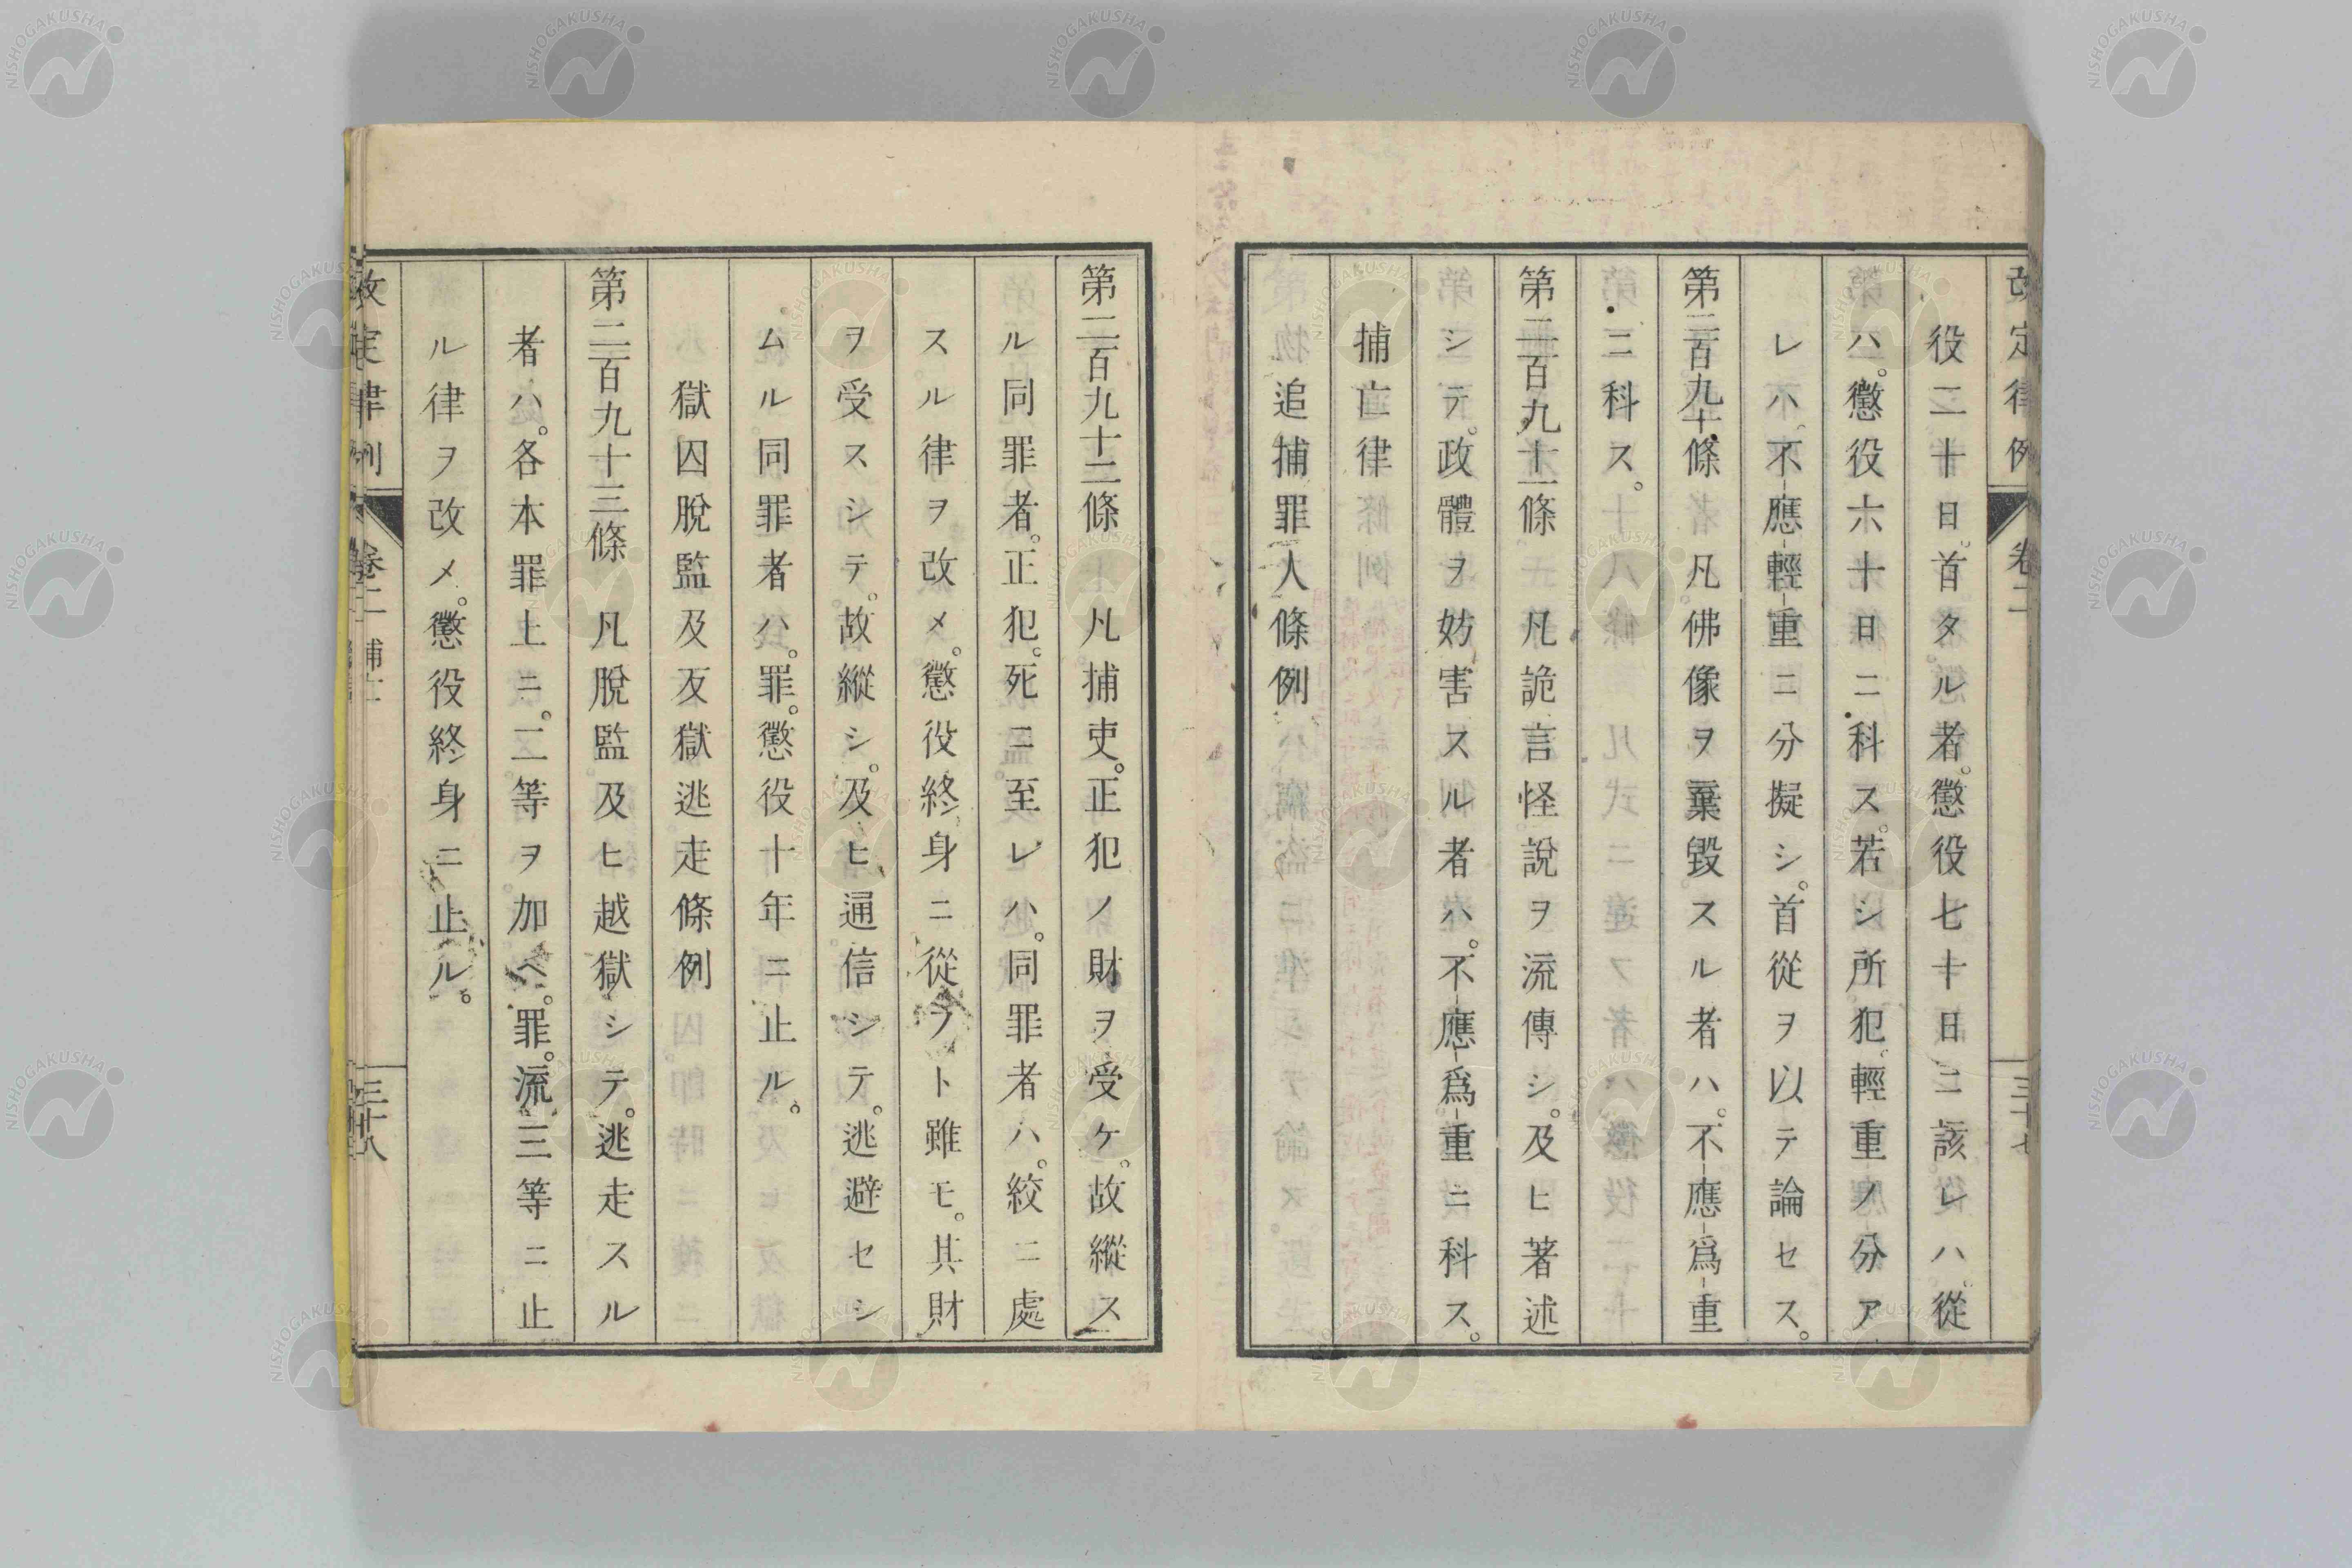 改定律例 卷二 三十七
役二十日。首タル者。懲役七十日ニ該レハ。從
ハ。懲役六十日ニ科ス。若シ所犯。輕重ノ分ア
レハ。不應輕重ニ分擬シ。首從ヲ以テ論セス。
第二百九十條 凡佛像ヲ棄毀スル者ハ。不應爲重
ニ科ス。
第二百九十一條 凡詭言怪說ヲ流傳シ。及ヒ著述
シテ。政體ヲ妨害スル者ハ。不應爲重ニ科ス。
捕亡律
追捕罪人條例
第二百九十二條 凡捕吏。正犯ノ財ヲ受ケ。故縱ス
ル同罪者。正犯。死ニ至レハ。同罪者ハ。絞ニ處
スル律ヲ改メ。懲役終身ニ從フト雖モ。其財
ヲ受スシテ。故縱シ。及ヒ通信シテ。逃避セシ
ムル同罪者ハ。罪。懲役十年ニ止ル。
獄囚脫監及反獄逃走條例
第二百九十三條 凡脫監及ヒ越獄シテ。逃走スル
者ハ。各本罪上ニ。二等ヲ加ヘ。罪。流三等ニ止
ル律ヲ改メ。懲役終身ニ止ル。
改定律例 卷二 捕亡 三十八
NISHOGAKUSHA